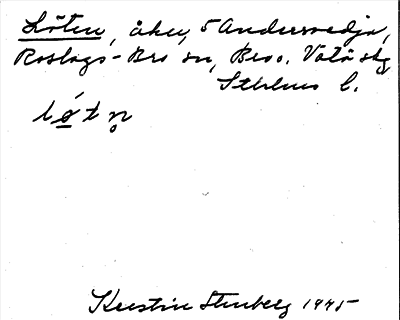 Löten, åker, 5 Andersvedja,
Roslags-Bro sn, Bro o. Vätö skg
Sthlms l.
lø̀tn̥
Kerstin Stenberg 1945